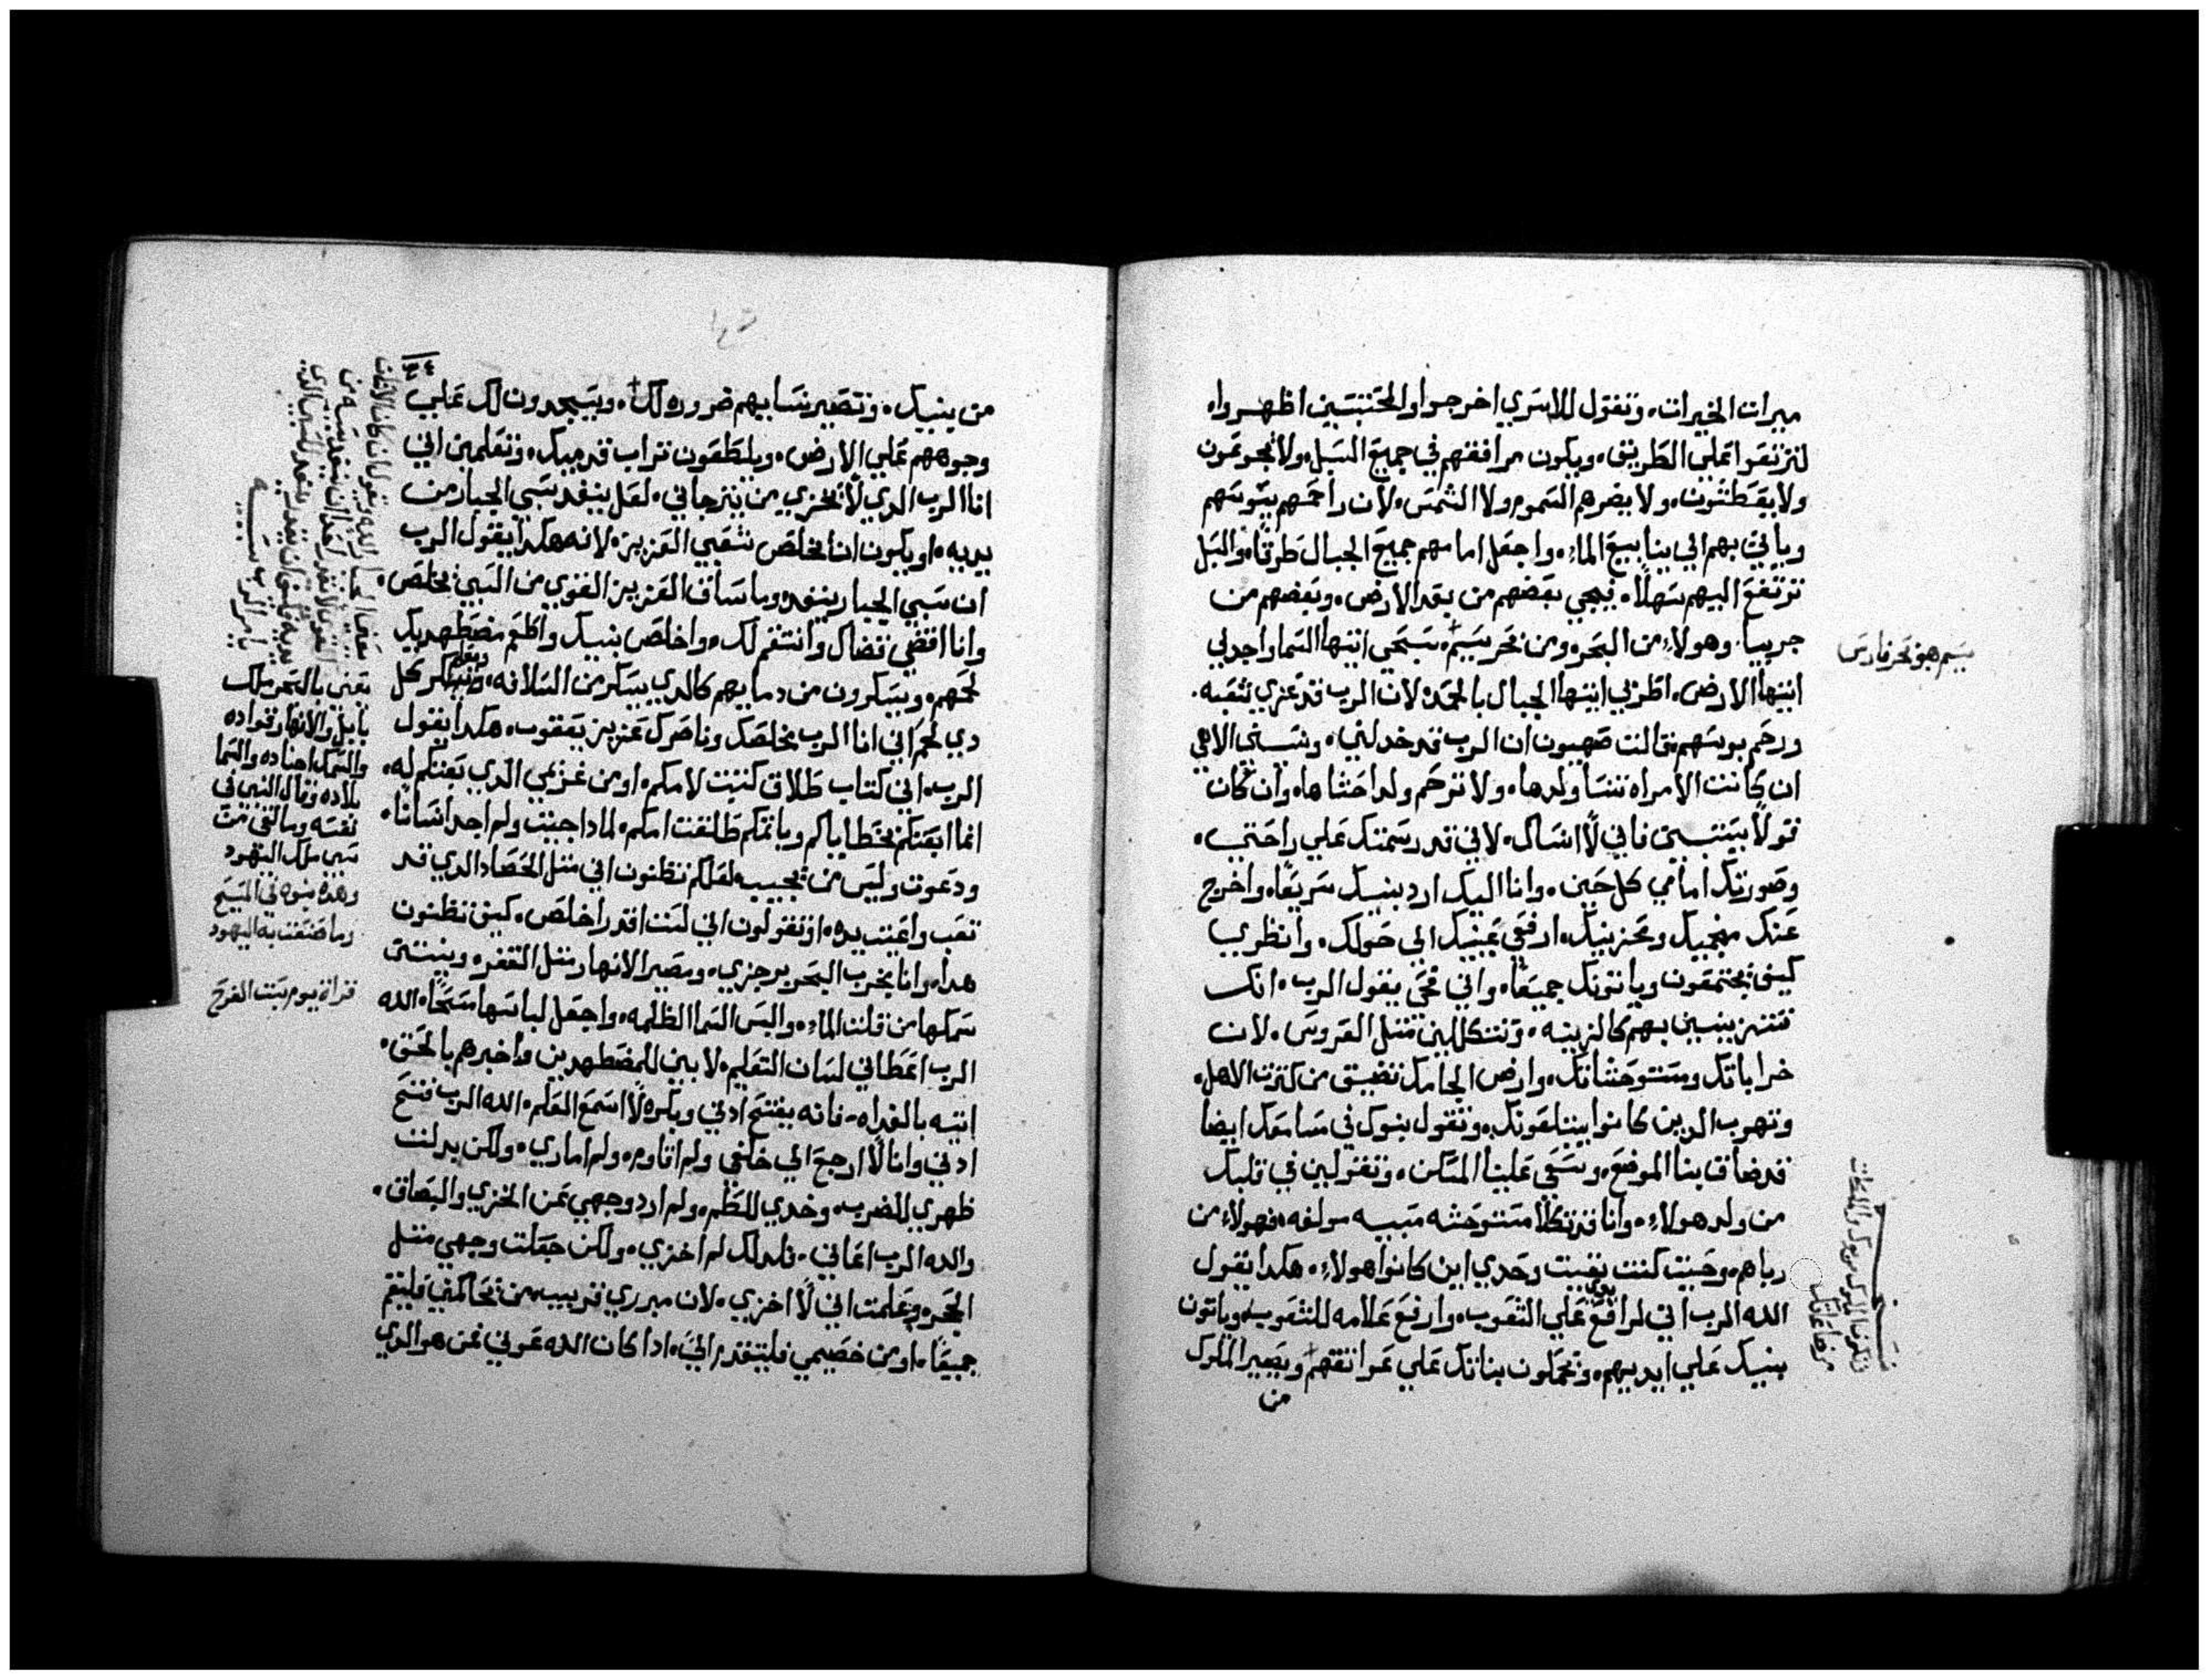 ميرات الخيرات، وتقول للاسري اخرجوا والمحتبسين اظهروا،
لترتقوا علي الطريق، ويكون مرافقهم في جميع السبل، ولا يجوعون
ولا يعطشون، ولا يضرهم السموم ولا الشمس، لان راحمهم يسوسهم
وياتي بهم الي ينابيع الماء، واجعل امامهم جميع الجبال طرقا، والسبل
ترتفع اليهم سهلا، فيجي بعضهم من بعد الارض، وبعضهم من
جربيا، وهولاء من البحر، ومن بحر سيم، سبحي ايتها السما واجدلي
ايتها الارض، اطربي ايتها الجبال بالحمد، لان الرب قد عزي شعبه،
ورحم بوسهم، قالت صهيون ان الرب قد خدلني، ونسيني الاهي
ان كانت الامراه تنسا ولدها، ولا ترحم ولد احشاها، وان كان
هولا ينسين فاني لا انساك، لاني قد رسمتك علي راحتي،
وصورتك امامي كل حين، وانا اليك ارد بنيك سريعا، واخرج
عنك مهجيك ومحزنيك، ارفعي عينيك الي حولك، وانظري
كيف يجتمعون وياتونك جميعا، واني محي يقول الرب، انك
تتزينين بهم كالزينه، وتتكللين مثل العروس، لان
خراباتك ومستوحشاتك، وارض الجامك تضيق من كثرت الاهل،
وتهرب الدين كانوا يبتلعونك، وتقول بنوك في مسامعك ايضا
قد ضاق بنا الموضع، وسعي علينا المسكن، وتقولين في قلبك
من ولد هولاء، وانا قد تكلا مستوحشه مسبيه مولفه، فهولاء من
رباهم، وحيت كنت بقيت وحدي اين كانوا هولاء، هكدا يقول
الله الرب اني لرافع يدي علي الشعوب، وارفع علامه للشعوب، وياتون
بنيك علي ايديهم، وتحملون بناتك علي عواتقهم، ويصير الملوك
من
سيم هو بحر فارس
من بنيك، وتصير نسايهم ضروره لك، ويسجدون لك علي
وجوههم علي الارض، ويلطعون تراب قدميك، وتعلمين اني
انا الرب الدي لا يخزي من يترجاني، لعل ينفد سبي الجبار من
يديه، او يكون ان يخلص شقي العزيز، لانه هكدا يقول الرب
ان سبي الجبار ينفد، وما ساق العزيز القوي من السبي يخلص،
وانا اقضي قضاك وانتقم لك، واخلص بنيك واطعم مضطهديك
لحمهم، ويسكرون من دمايهم كالدي يسكر من السلافه، ويعلم كل
دي لحم اني انا الرب مخلصك وناصرك عزيز يعقوب، هكدا يقول
الرب، اني كتاب طلاق كتبت لامكم، او من غزيمي الدي بعتكم له،
انما ابعتكم بخطاياكم وباتمكم طلقت امكم، لمادا جيت ولم اجد انسانا،
ودعوت وليس من يجيب، لعلكم تظنون اني مثل الحصاد الدي قد
تعب واعيت يده، او تقولون اني لست اقدر اخلص، كيف تظنون
هدا، وانا يخرب البحر برجزي، وتصير الانهار مثل القفر، وينتتن
سمكها من قلت الماء، والبس السما الظلمه، واجعل لباسها مسحا، الله
الرب اعطاني لسان التعليم، لابين للمضطهدين واخبرهم بالحق،
انتبه بالغداه، فانه يفتح ادني ويكره لا اسمع العلم، الله الرب فتح
ادني وانا لا ارجع الي خلفي ولم اقاوم، ولم اماري، ولكن بدلت
ظهري للضرب، وخدي للطم، ولم ارد وجهي عن الخزي والبصاق،
والله الرب اعاني، فلدلك لم اخزي، ولكن جعلت وجهي مثل
الحجر، وعلمت اني لا اخزي، لان مبرري قريب، من يحاكمني فليقم
جميعا، او من خصيمي فليتقدم الي، ادا كان الله عوني فمن هو الدي
يعني بالبحر ملك
بابل والانهار قواده
والسمك اجناده والسما
بلاده وقال النبي في
نفسه وما لقي من
بني ملك اليهود
وهده نبوه في المسيح
وما صنعت به اليهود
قراة يوم سبت الفرح